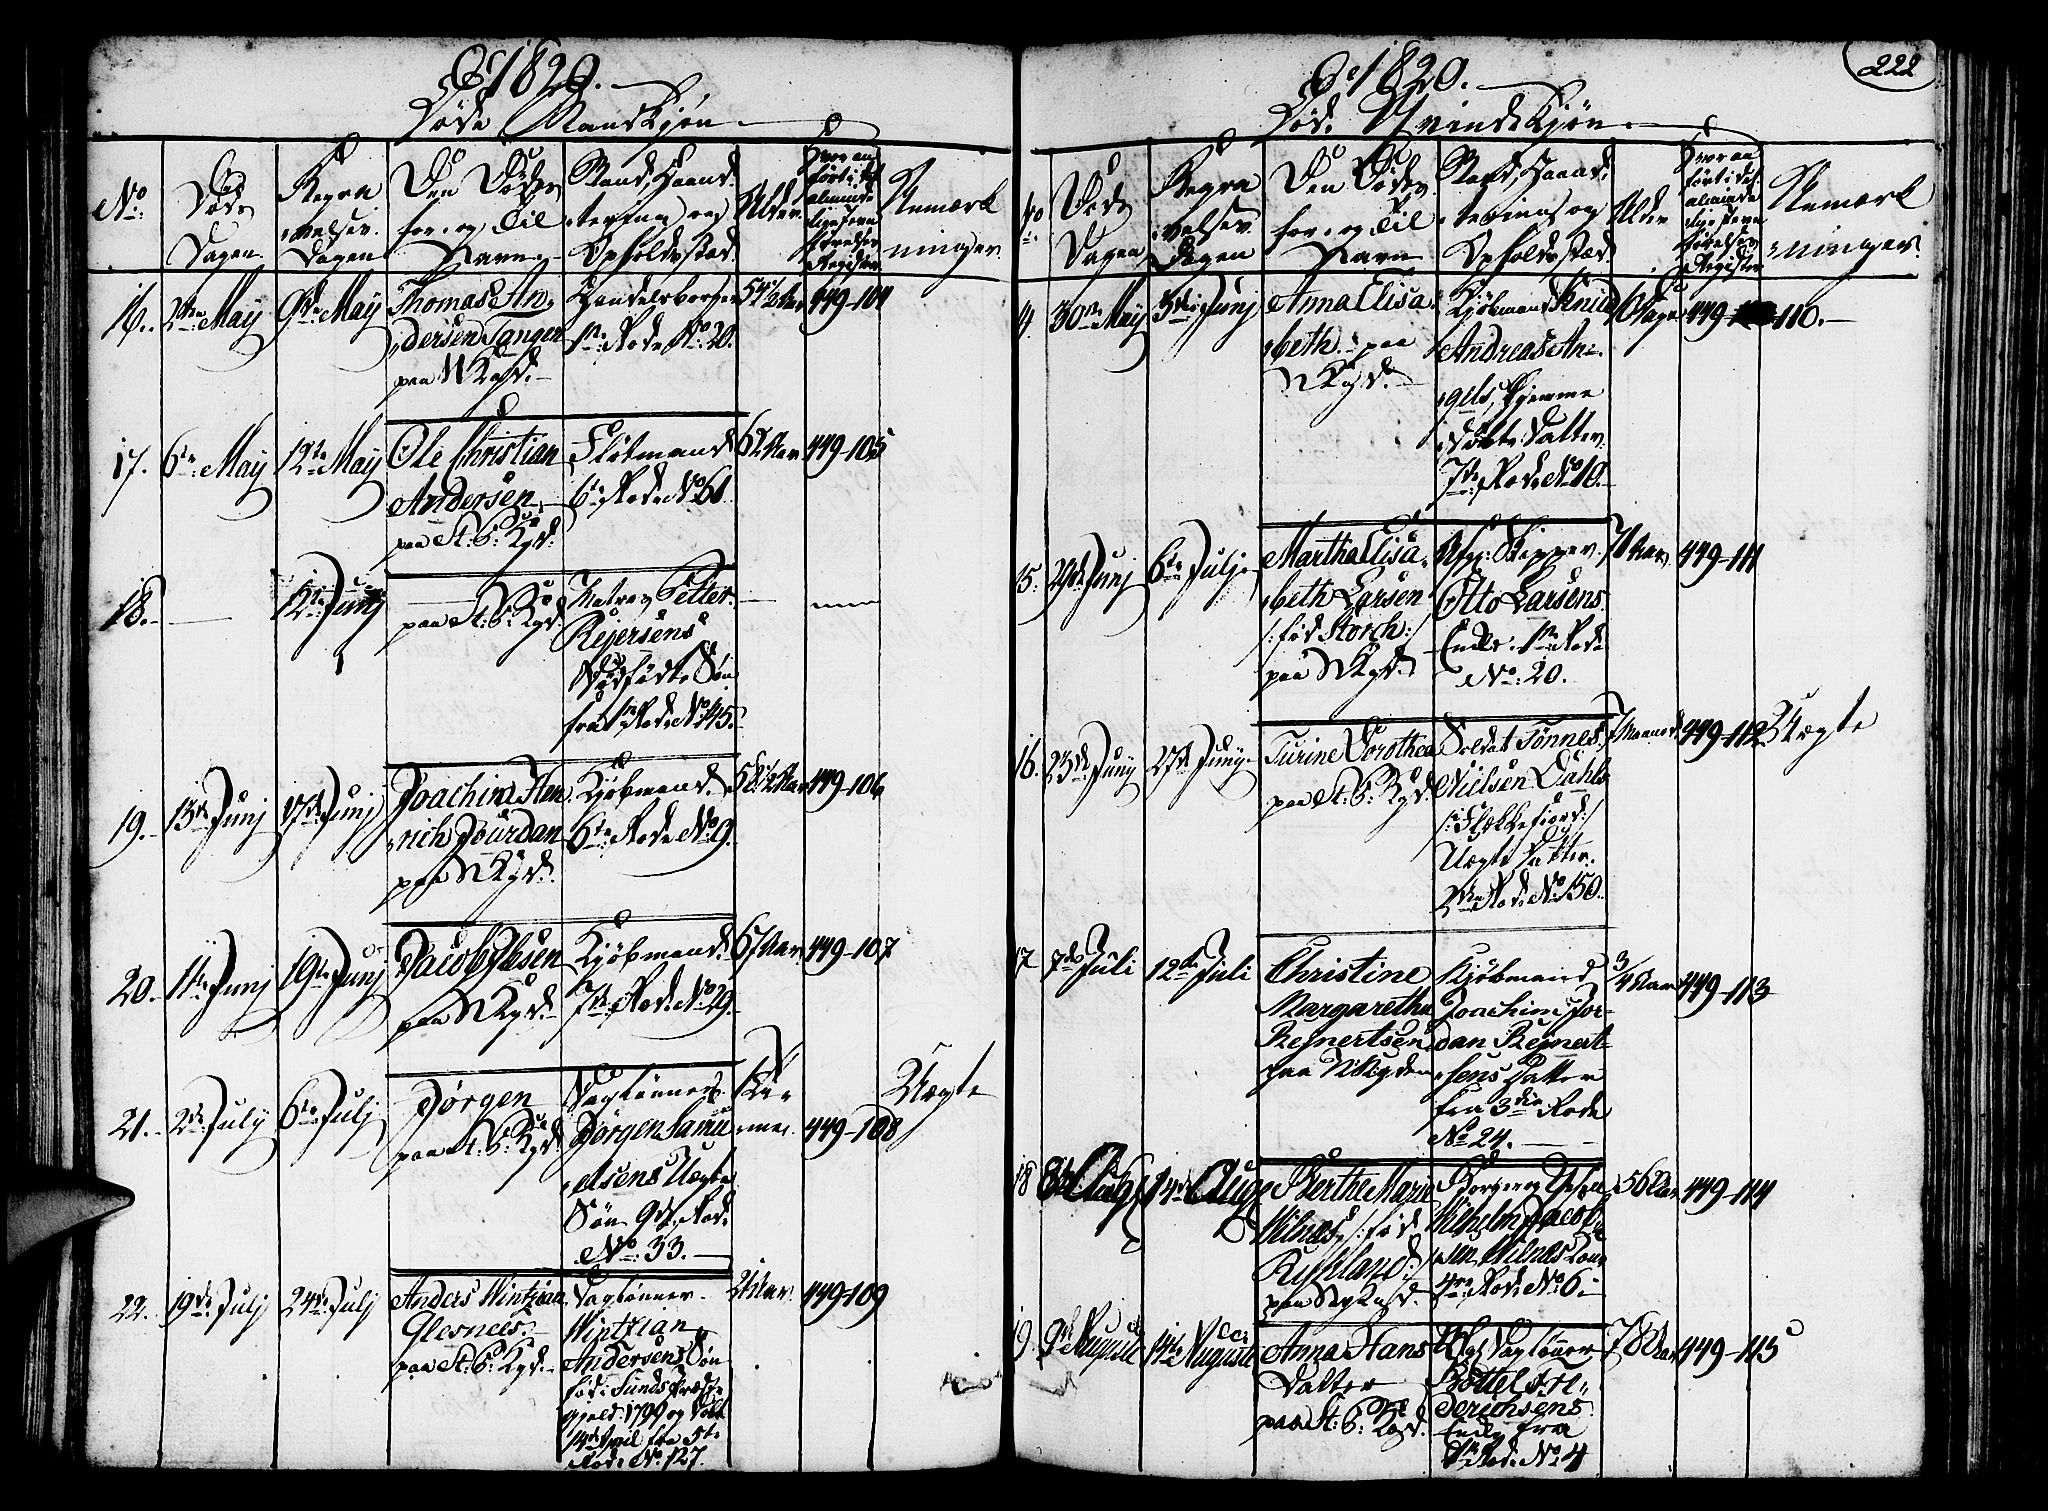 Ao 1820.
Døde Mandkjøn
No:
Døds
Dagen
Begra
velses
Dagen
Den Dødes
for- og Til
Navn
Stand, Haand
tering og
Opholdssted
Alder
Hvor an
ført i det
alminde
lige Jevn
førelses
Register
Anmærk
ninger
16.
2den May
9de May
Thomas An
dersen Tangen
paa N Kgd.
Handelsborger
1ste Rode No: 20.
54 1/2 Aar
449-104
17.
6te May
12te May
Ole Christian
Andersen
paa St: P: Kgd.
Flötmand
6te Rode No 61.
62 Aar
449-105
18.
12te Junj
paa St: P: Kgd.
Matros Petter
Rejersens
Dødfødte Søn
fra 1ste Rode No 45.
19.
13de Junj
17de Junj
Joachim Hen
rich Jourdan
paa N Kgd.
Kjøbmand
6te Rode No 9.
58 1/2 Aar
449-106
20.
11te Junj
19de Junj
Jacob Ibsen
paa N Kgd.
Kjøbmand
7de Rode No 29.
67 Aar
449-107
21.
2den July
6te Julj
Jörgen
paa St: P: Kgd.
Dagløner
Jörgen Samu
elsens Uægte
Søn 9de Rode
No: 33.
449-108
Uægte
22.
19de Julj
24de July
Anders Wintzian
Glesnees.
paa St: P: Kgd.
Dagløner
Wintzian
Andersens Søn
fød i Sunds Præste
gjeld 1799 og Døbt
14de April fra 5te
Rode No 127.
449-109
222
Ao 1820.
Døde Qvindekjøn
No
Døds
Dagen
Begra
velses
Dagen
Den Dødes
for- og Til
Navn
Stand, Haand
tering og
Opholdssted
Alder
Hvor an
ført i det
alminde
lige Jevn
førelses
Register
Anmærk
ninger
30te May
5te Junj
Anna Elisa
beth paa
N Kgd.
Kjøbmand Knud
Andreas An
gels, hjemme
døbte Datter
7de Rode No 10.
449-110.
15.
29de Junj
6te Julj
Martha Elisa
beth Larsen
/: fød Storch :/
paa N Kgd.
Afg: Skipper
Otto Larsens
Enke 1ste Rode
No: 20.
71 Aar
449-111
16.
23de Juny
27de Juny
Turine Dorothea
paa St: P: Kgd.
Soldat Tønnes
Nielsen Dahls
/: Flekkefiord :/
Uægte Datter
2den Rode No 150.
7 Maaned
449-112
Uægte
17
7de Juli
12te Juli
Christine
Margaretha
Reinertsen
paa N Kigden
Kjøbmand
Joachim Jor-
dan Reinert-
sens Datter
fra 3die Rode
No 24.
3/4 Aar
449-113
18
8de Aug
14de Aug
Berthe Marie
Wilnes /: fød
Rykkland :/
paa Ny Kgd.
Borger og
Wilhelm Jacob
sen Wilnes Kone
4de Rode No 6
56 Aar
449-114
19.
9de August
14de August
Anna Hans
Datter
paa St: P: Kgd.
Afg: Dagløner
Bottel Fre
derichsens
Enke fra
Rode No 4
78 Aar
449-115